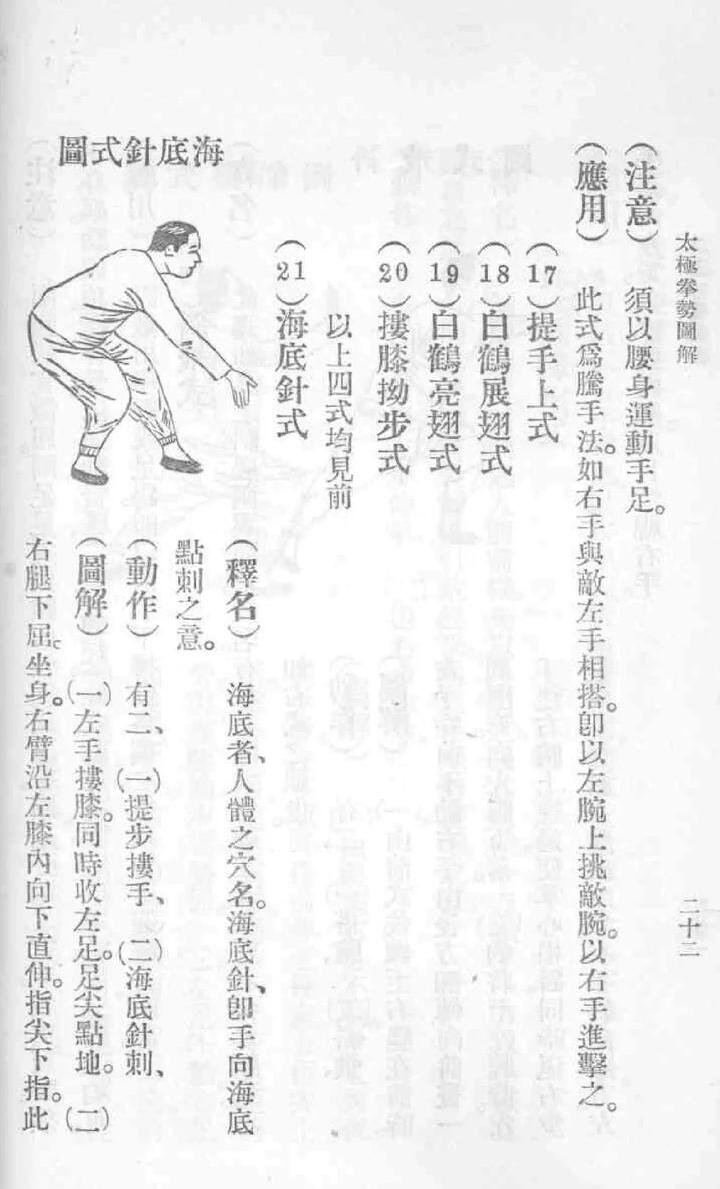 太極拳勢圖解
二十二
（注意）　須以腰身運動手足。
（應用）　此式爲騰手法。如右手與敵左手相搭。卽以左腕上挑敵腕。以右手進擊之。
（17）提手上式
（18）白鶴展翅式
（19）白鶴亮翅式
（20）摟膝拗步式
以上四式均見前
（21）海底針式
海底針式圖
（釋名）　海底者、人體之穴名。海底針、卽手向海底
點刺之意。
（動作）　有二、（一）提步摟手、（二）海底針刺、
（圖解）　（一）左手摟膝。同時收左足。足尖點地。（二）
右腿下屈。坐身。右臂沿左膝內向下直伸。指尖下指。此